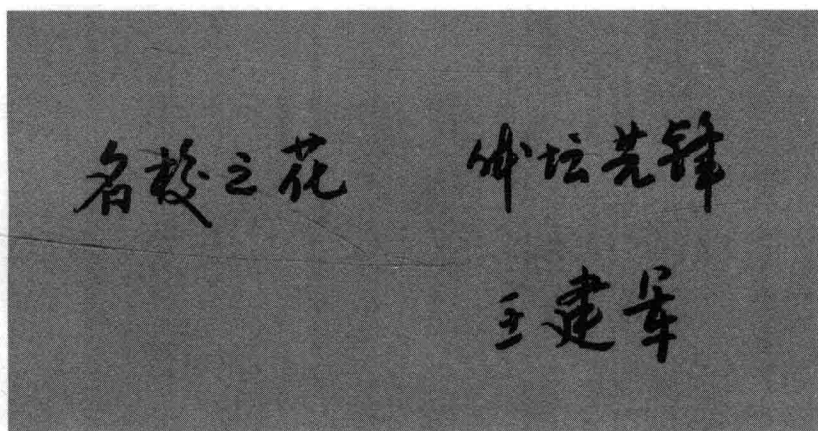 名校之花 体坛先锋
王建军